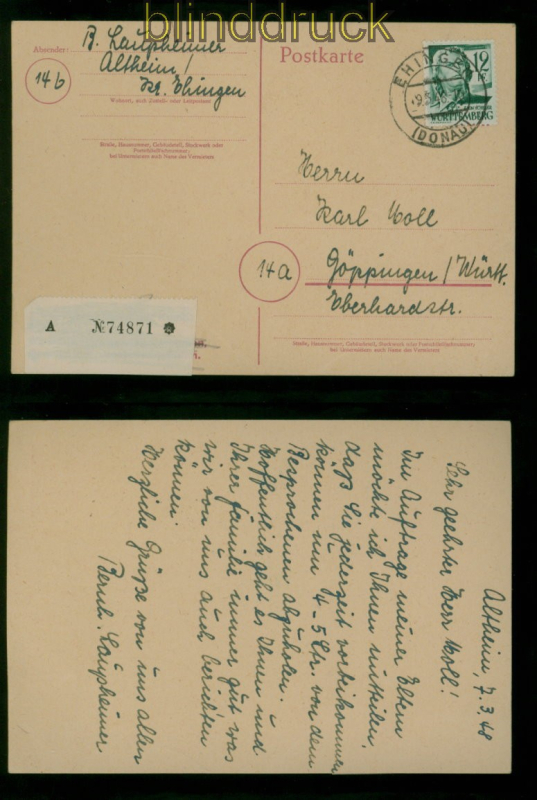 blinddruck
Absender:
B. Laupheimer
Altheim/
Kr. Ehingen
14b
Wohnort, auch Zustell- oder Leitpostamt
Straße, Hausnummer, Gebäudeteil, Stockwerk oder
Postschließfachnummer;
bei Untermietern auch Name des Vermieters
Postkarte
EHINGEN
(DONAU)
12
Pf
WÜRTTEMBERG
Herrn
Karl Noll
14a
Göppingen/Württ.
Eberhardstr.
Straße, Hausnummer, Gebäudeteil, Stockwerk oder Postschließfachnummer;
bei Untermietern auch Name des Vermieters
A №74871
Altheim, 7.3.48
Sehr geehrter Herr Noll!
Im Auftrage meiner Eltern
möchte ich Ihnen mitteilen,
daß Sie jederzeit vorbeikommen
können um 4-5 Ztr. von dem
Besprochenen abzuholen.
Hoffentlich geht es Ihnen und
Ihrer Familie immer gut was
wir von uns auch berichten
können.
Herzliche Grüße von uns allen
Bernh. Laupheimer